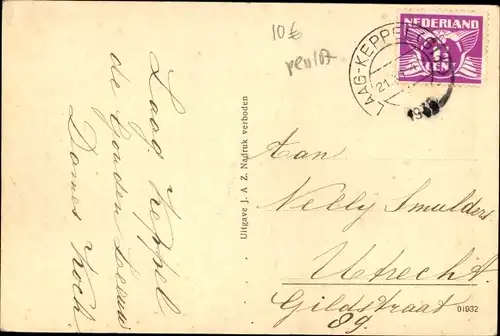 10 €
NEDERLAND
CENT
LAAG-KEPPEL
Laag Keppel
de Gouden Leeuw
Dames Koch.
Uitgave J. A Z. Nadruk verboden
Aan
Nelly Smulders
Utrecht.
Gildstraat
89
01932